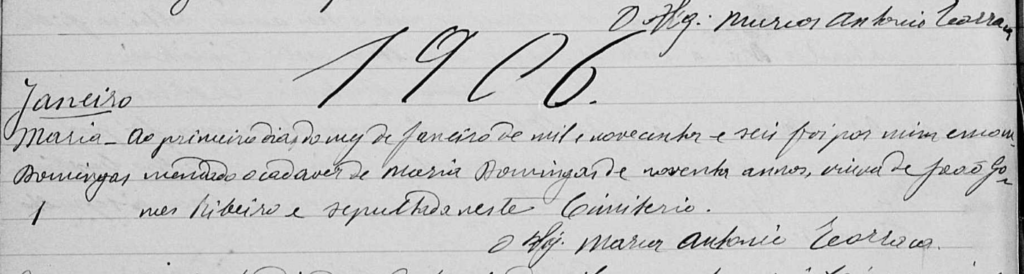 O Vig. Marcos Antonio
1906.
Janeiro
Maria - Ao primeiro dias do mez de Janeiro de mil e novecentos e seis foi por mim encom-
Domingas mendado o cadaver de Maria Domingas de noventa annos, viuva de João Go-
1 mes Ribeiro e sepultada neste Cimiterio.
O Vig. Marcos Antonio